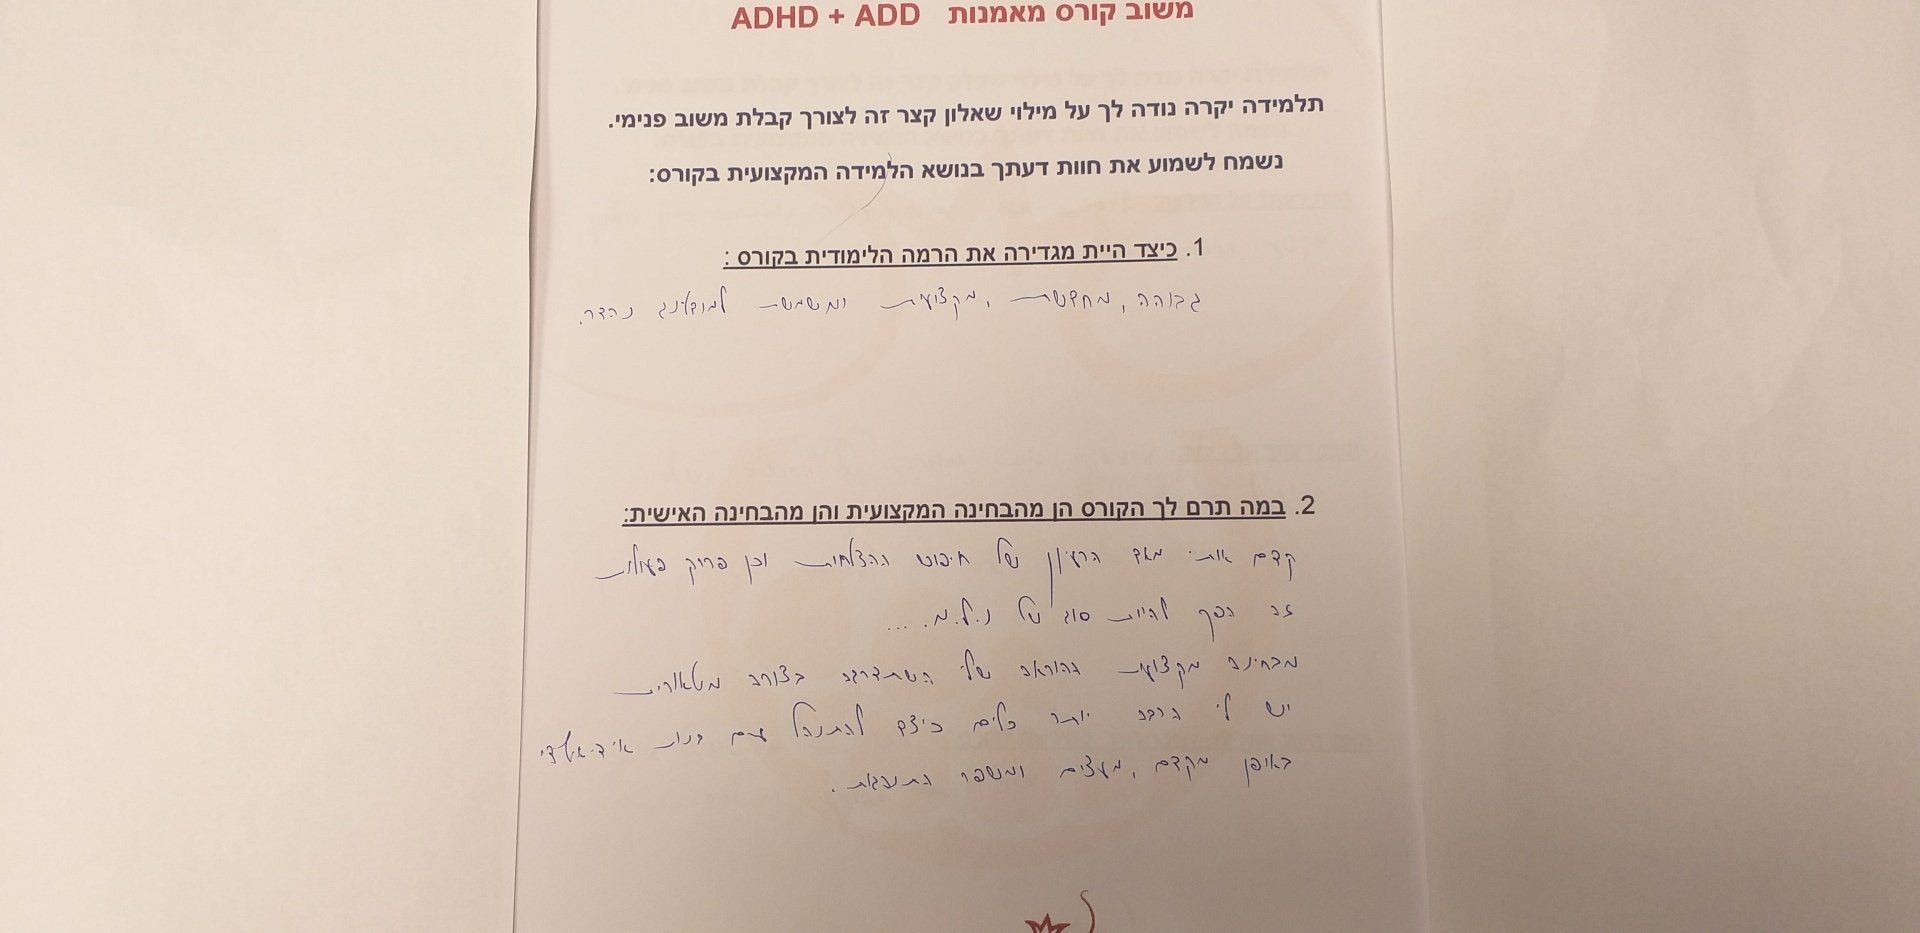 משוב קורס מאמנות ADHD + ADD
תלמידה יקרה נודה לך על מילוי שאלון קצר זה לצורך קבלת משוב פנימי.
נשמח לשמוע את חוות דעתך בנושא הלמידה המקצועית בקורס:
1. כיצד היית מגדירה את הרמה הלימודית בקורס :
גבוהה, מחדשת, מקצועית ומשמשת למודלינג נהדר.
2. במה תרם לך הקורס הן מהבחינה המקצועית והן מהבחינה האישית:
קדם אותי מאד הרעיון של חיפוש ההצלחות וכן פריק פעולות
זה הפך להיות סוג של נ.ל.מ. ...
מבחינה מקצועית ההוראה שלי השתדרגה בצורה מטאורית
יש לי הרבה יותר כלים כיצד להתנהל עם בנות אי.די.אי.די
באופן מקדם, מעצים ומשפר התנהגות.